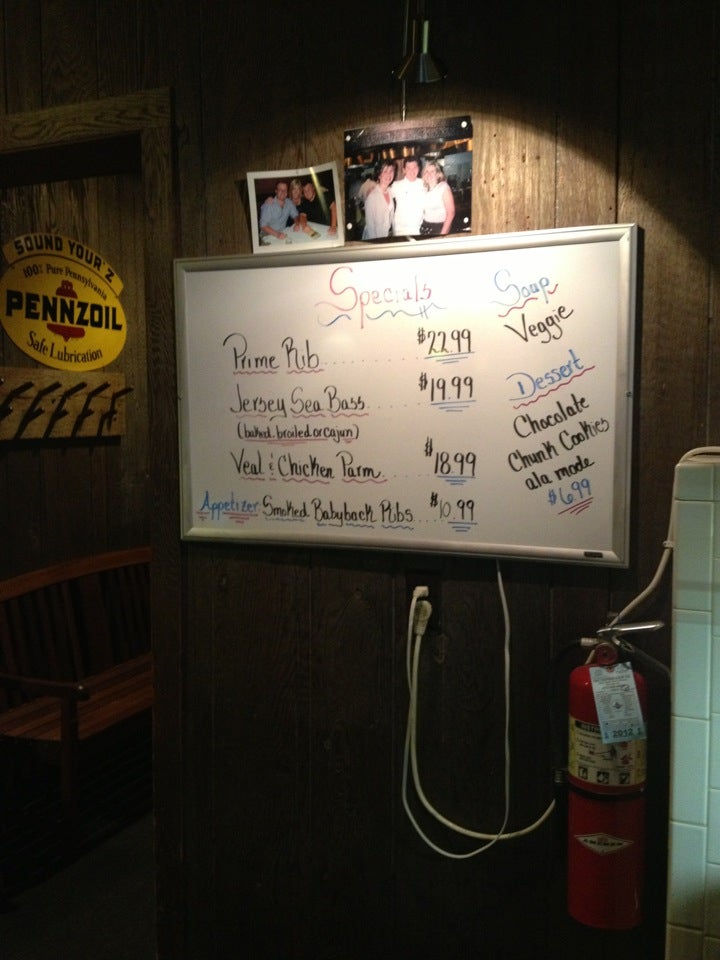 SOUND YOUR 'Z
100% Pure Pennsylvania
PENNZOIL
Safe Lubrication
Specials
Prime Rib ........ $22.99
Jersey Sea Bass ..... $19.99
(baked, broiled or cajun)
Veal & Chicken Parm ..... $18.99
Appetizer: Smoked Babyback Ribs... $10.99
Soup
Veggie
Dessert
Chocolate
Chunk Cookies
ala mode
$6.99
2012